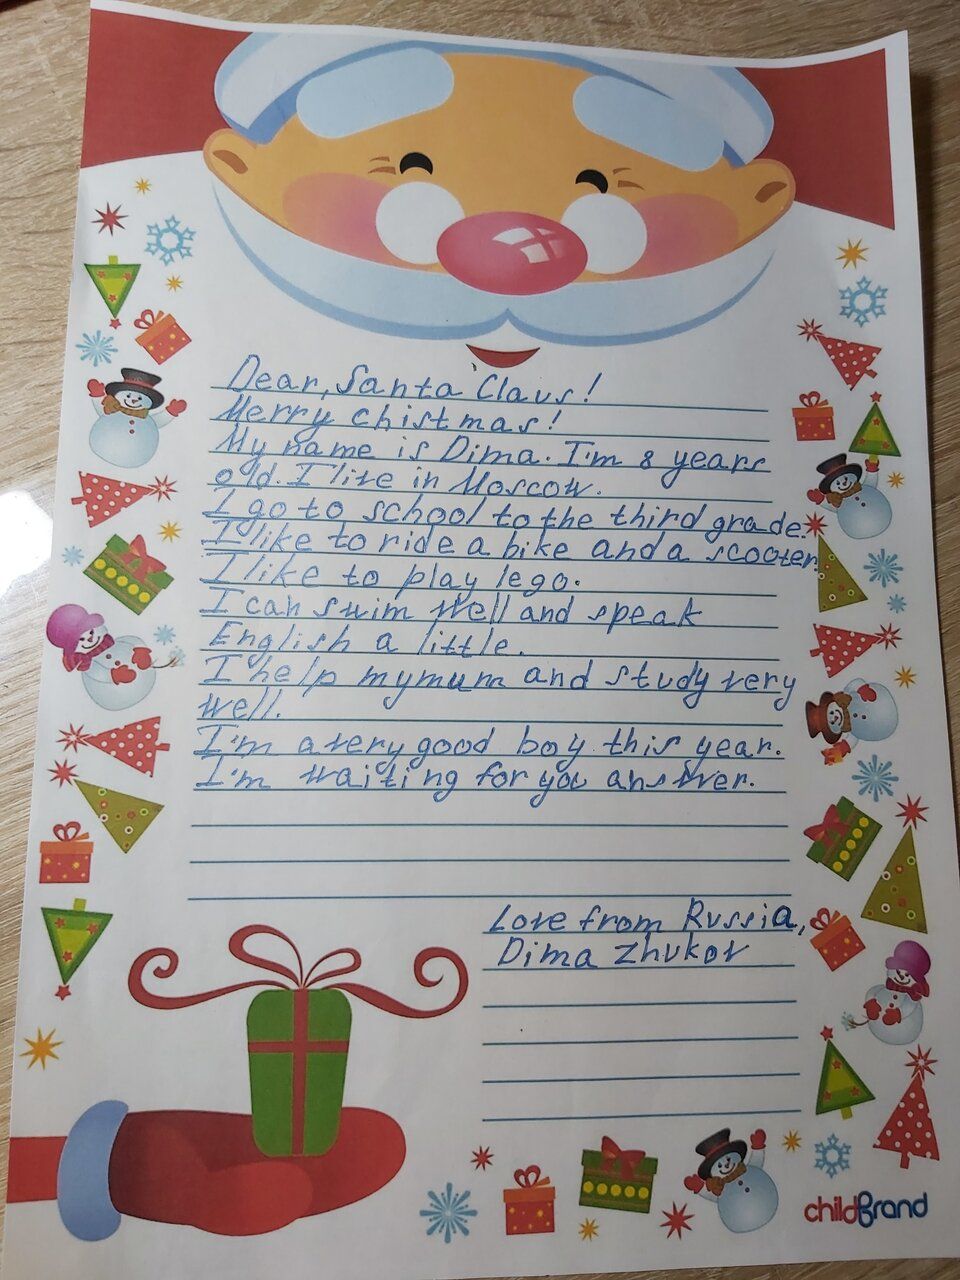 Dear, Santa Claus!
Merry chistmas!
My name is Dima. I'm 8 years
old. I live in Moscow.
I go to school to the third grade.
I like to ride a bike and a scooter.
I like to play lego.
I can swim well and speak
English a little.
I help my mum and study very
well.
I'm a very good boy this year.
I'm waiting for you answer.
Love from Russia,
Dima Zhukov
childBrand